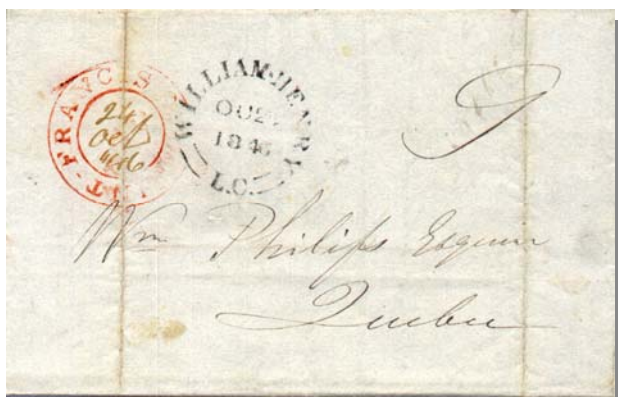 ST-FRANCIS
24
Oct
1846
WILLIAM-HENRY
OC 2
1846
L.C.
9
Wm Philips Esquire
Quebec